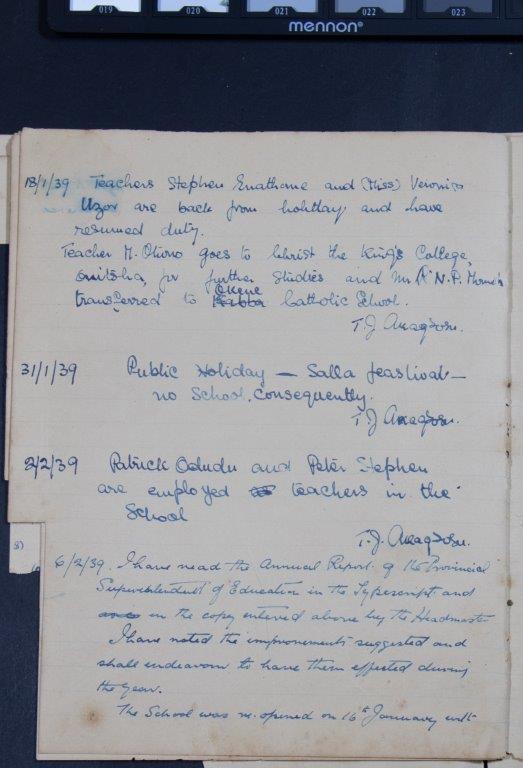 019 020 021 022 023
mennon®
18/1/39 Teachers Stephen Enathome and (Miss) Veronica
Uzor are back from holiday and have
resumed duty.
Teacher M. goes to Christ the King's College,
Onitsha, for further studies and Mr N.P.
transferred to Okene Kabba Catholic School.
T.J
31/1/39 Public Holiday — Salla feastival —
no School, consequently.
T.J
2/2/39 Patrick Odudu and Peter Stephen
are employed as teachers in the
School
T.J.
6/2/39. I have read the Annual Report of the Provincial
Superintendent of Education in the Typescript and
in the copy entered above by the Headmaster
I have noted the improvements suggested and
shall endeavour to have them effected during
the year.
The School was re-opened on 16th January with